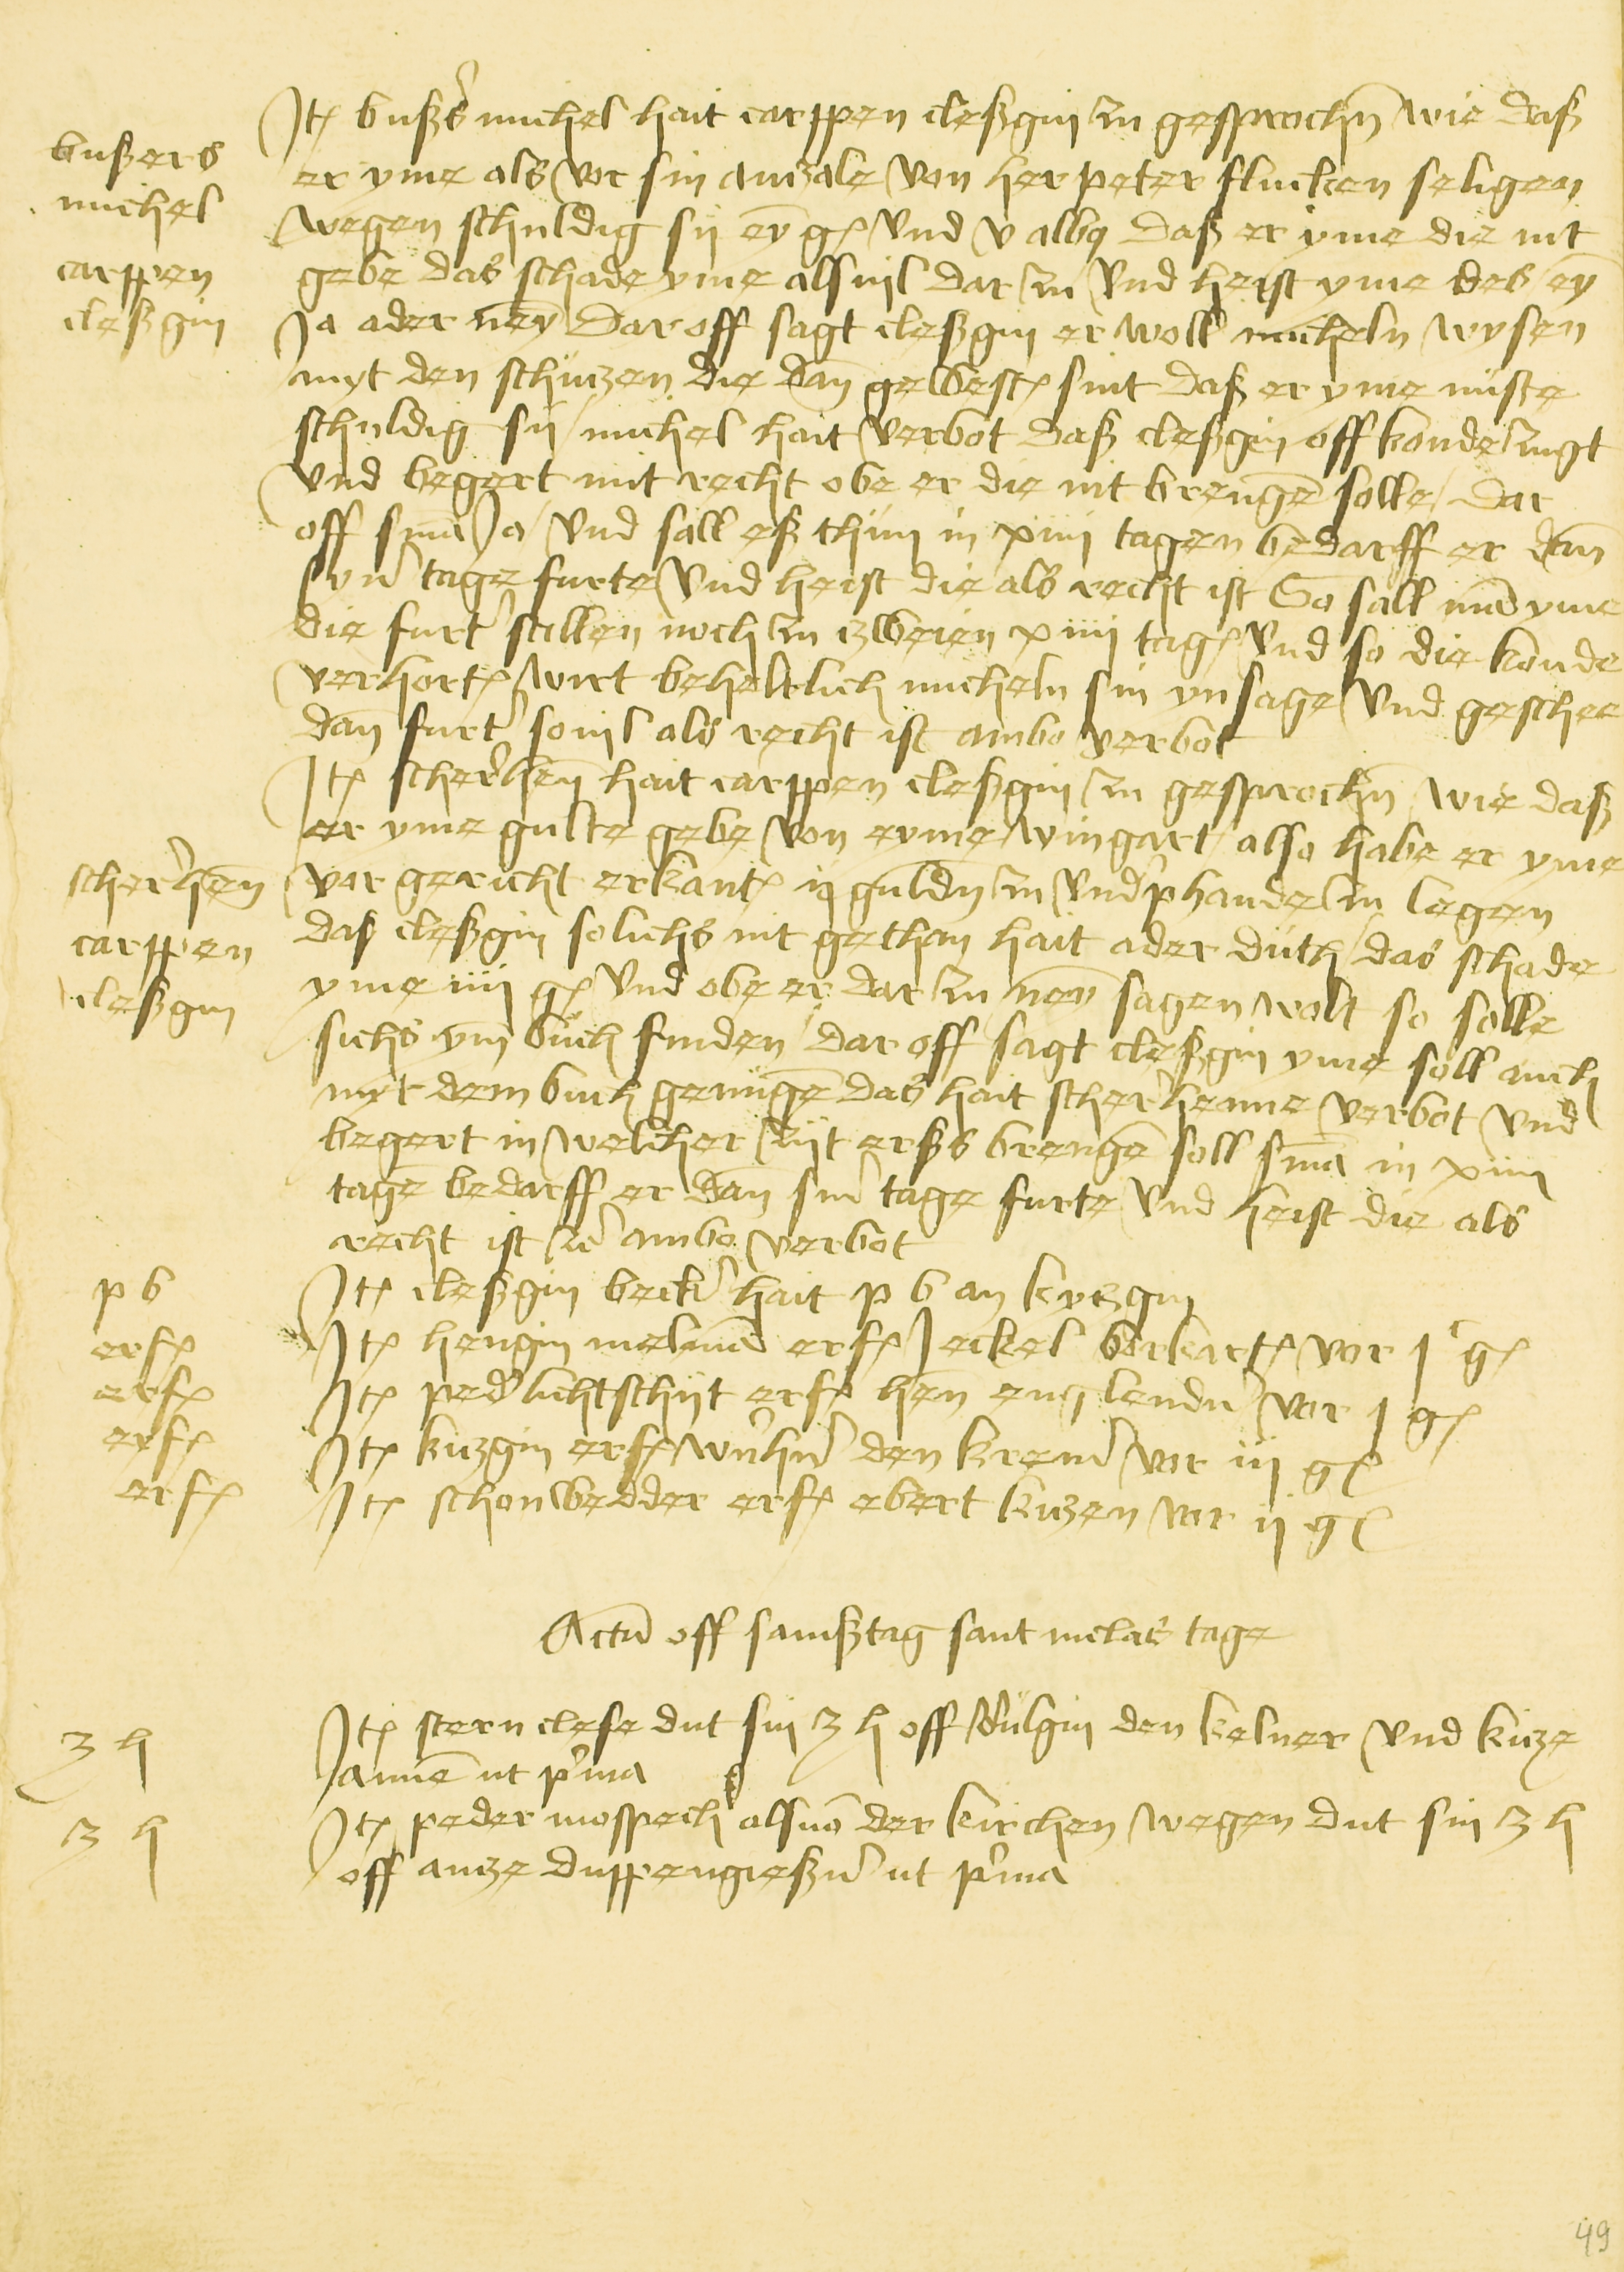 bußers
michel
carppen
cleßgin
Jt(em) bußers michel hait carppen cleßgin zu gesprochen wie daß
er yme als vor sin anzale von her peter flucken seligen
wegen schuldig sij ey g vnd v alb daß er yme die nit
gebe das schade yme alsuil dar zu vnd heist yme des ey
Ja ader ney Dar off sagt cleßgin er woll micheln wysen
myt den schutzen die dan gewest sint daß er yme nuste
schuldig sij / michel hait verbot daß cleßgin off konde zugt
vnd begert mit recht obe er die nit brenge solle / Dar
off sma Ja / vnd sall eß thun in xiiii tagen bedarff er dan
syner tage furte vnd heist die als recht ist So sall man yme
die furter stellen noch zu zweien xiiii tag vnd so die konde
verhort wirt beheltlich micheln sin ynsage vnd geschee
dan furter souil als recht ist ambo verbot
scherhen
carppen
cleßgin
Jt(em) scherhen hait carppen cleßgin zu gesprochen wie daß
er yme gulte gebe von eyme wingart / also habe er yme
vor gericht erkant ij guldn zu vnd phande zu legen
das cleßgin solichs nit gethan hait ader duth / das schade
yme iiii g vnd obe er dar zu ney sagen wolt so solle
sichs ym buch finden / dar off sagt cleßgin yme soll auch
myt dem buch genuge das hait scherhenne verbot vnd
begert in welcher zijt erßs brenge soll sma in xiiii
tage bedarff er dan siner tage furte vnd heist die als
recht ist ambo verbot
p b
Jt(em) cleßgin becker hait p b an kytzgin
erf
Jt(em) hengin melman erf Jeckel borkart vor j g
erf
Jt(em) peder lichtschijt erf hen englender vor j g
erf
Jt(em) kitzgin erf den kremer vor iij g
erf
Jt(em) schonwedder erf ebert kitzen vor ij g
Actum off samßtag sant niclas tage
3 h
Jt(em) stern clese dut sin 3 h off wilgin den kelner vnd kitze
Janne ut prima
3 h
Jt(em) peder mospach als von der kirchen wegen dut sin 3 h
off antze duppengießer ut prima
49